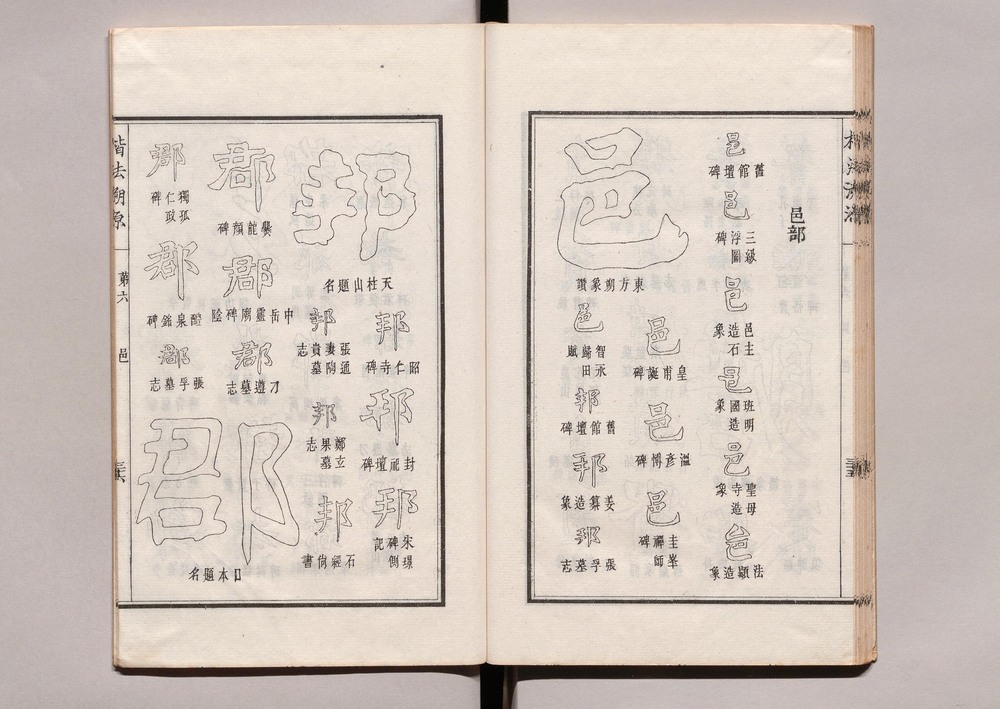 邑部
邑
舊館壇碑
邑
三級浮圖碑
邑
邑主造石象
邑
班明國造象
邑
聖母寺造象
邑
法顯造象
邑
東方朔象讚
邑
皇甫誕碑
邑
溫彥博碑
邑
圭峯禪師碑
邑
智永歸田賦
邦
舊館壇碑
邦
姜纂造象
邦
張孚墓志
邦
天柱山題名
邦
昭仁寺碑
邦
封祀壇碑
邦
朱璟碑側記
邦
張通妻陶貴墓志
邦
鄭玄果墓志
邦
石經尚書
郡
爨龍顏碑
郡
中岳靈廟碑陰
郡
刁遵墓志
郡
獨孤仁政碑
郡
醴泉銘碑
郡
張孚墓志
郡
日本題名
楷法溯源 第六 邑